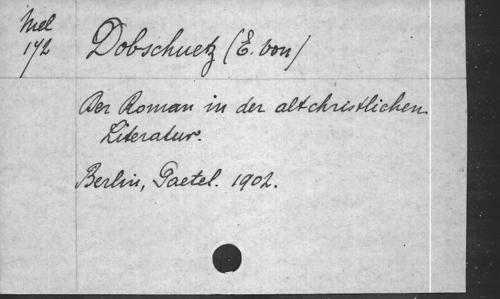 Mel
172
Dobschuetz (E. von)
Der Roman in der altchristlichen
Literatur.
Berlin, Paetel. 1902.